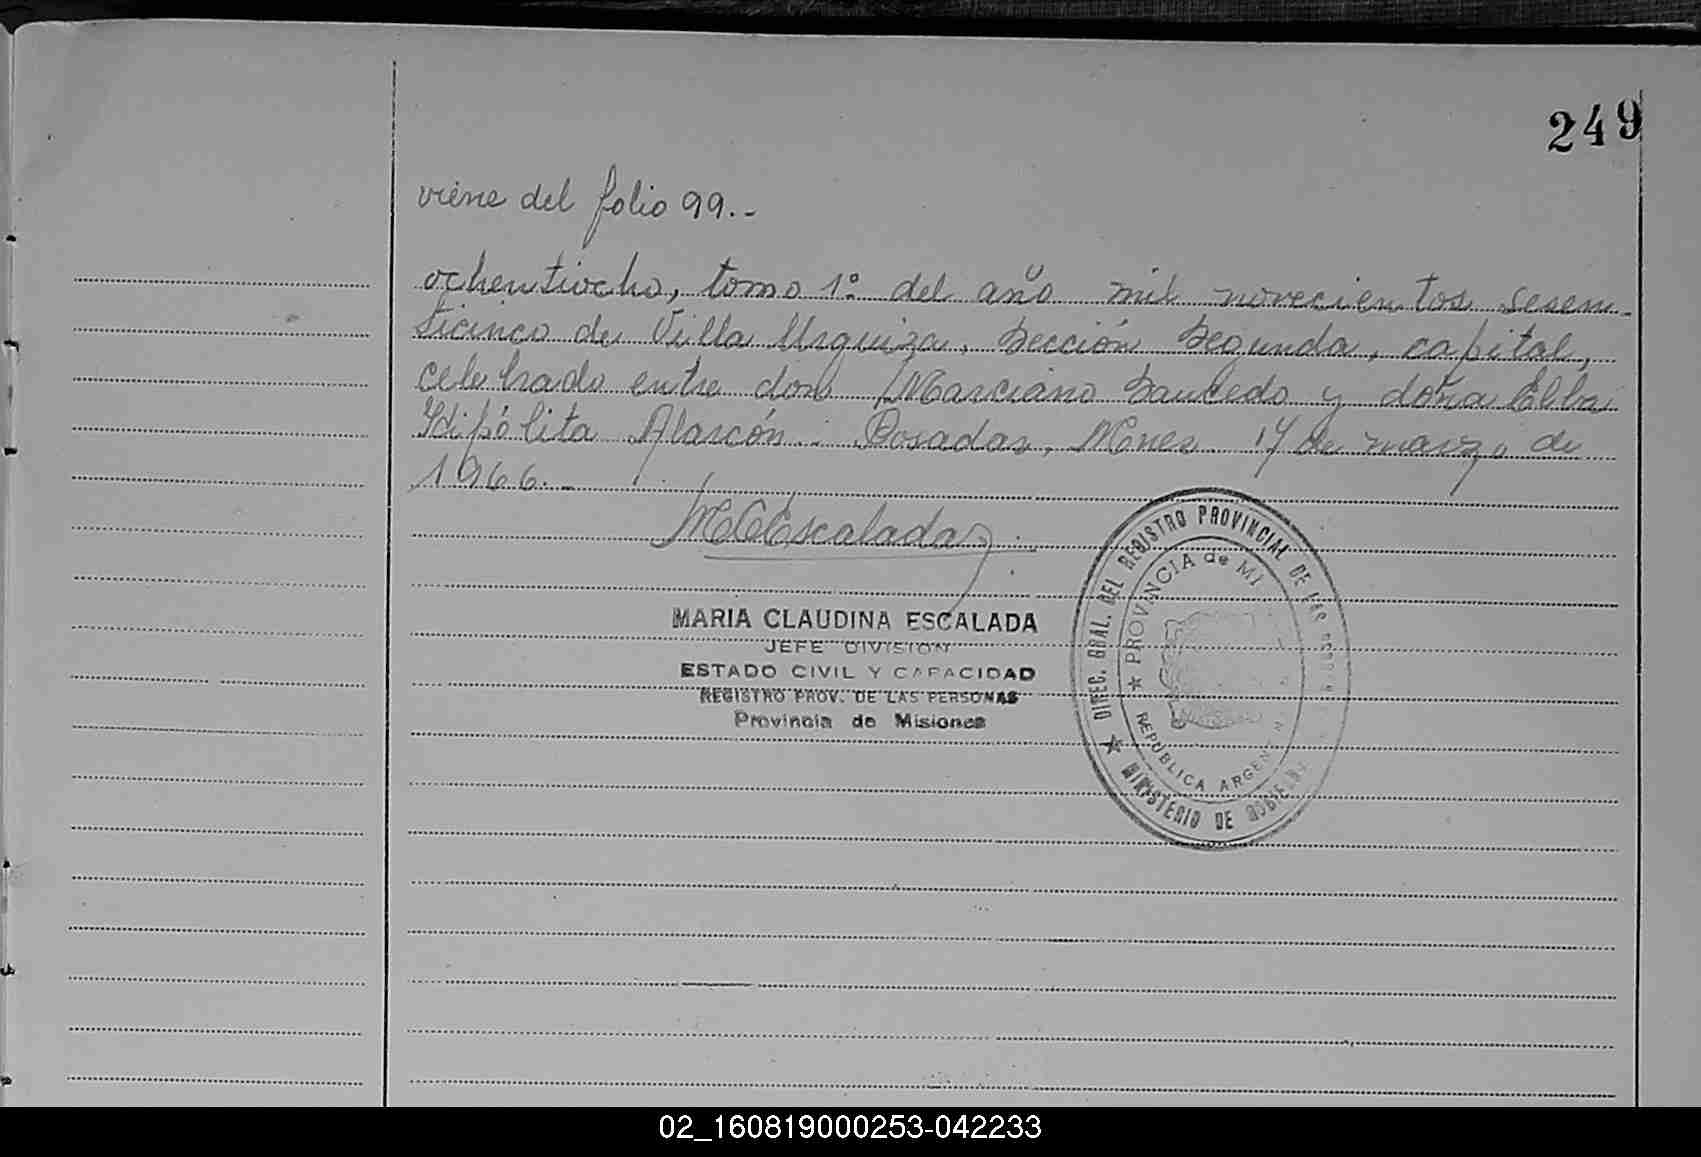 249
viene del folio 99.-
ochentiocho, tomo 1º del año mil novecientos sesen-
ticinco de Villa Urquiza, Sección Segunda, capital,
celebrado entre don Marciano Saucedo y doña Elba
Hipólita Alarcón.- Posadas, Mnes. 17 de marzo de
1966.-
MCEscalada
MARIA CLAUDINA ESCALADA
JEFE DIVISION
ESTADO CIVIL Y CAPACIDAD
REGISTRO PROV. DE LAS PERSONAS
Provincia de Misiones
★ DIREC. GRAL. DEL REGISTRO PROVINCIAL DE LAS
MINISTERIO DE GOBIERNO
★ PROVINCIA de MI
REPÚBLICA ARGENTINA
02_160819000253-042233